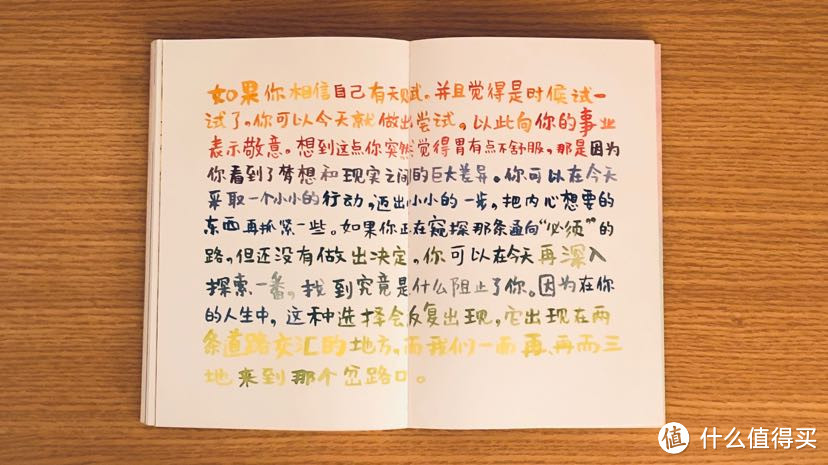 如果你相信自己有天赋，并且觉得是时候试一
试了，你可以今天就做出尝试，以此向你的事业
表示敬意。想到这点你突然觉得胃有点不舒服，那是因为
你看到了梦想和现实之间的巨大差异。你可以在今天
采取一个小小的行动，迈出小小的一步，把内心想要的
东西再抓紧一些。如果你正在窥探那条通向“必须”的
路，但还没有做出决定，你可以在今天再深入
探索一番，找到究竟是什么阻止了你。因为在你
的人生中，这种选择会反复出现，它出现在两
条道路交汇的地方，而我们一而再、再而三
地来到那个岔路口。
值 什么值得买